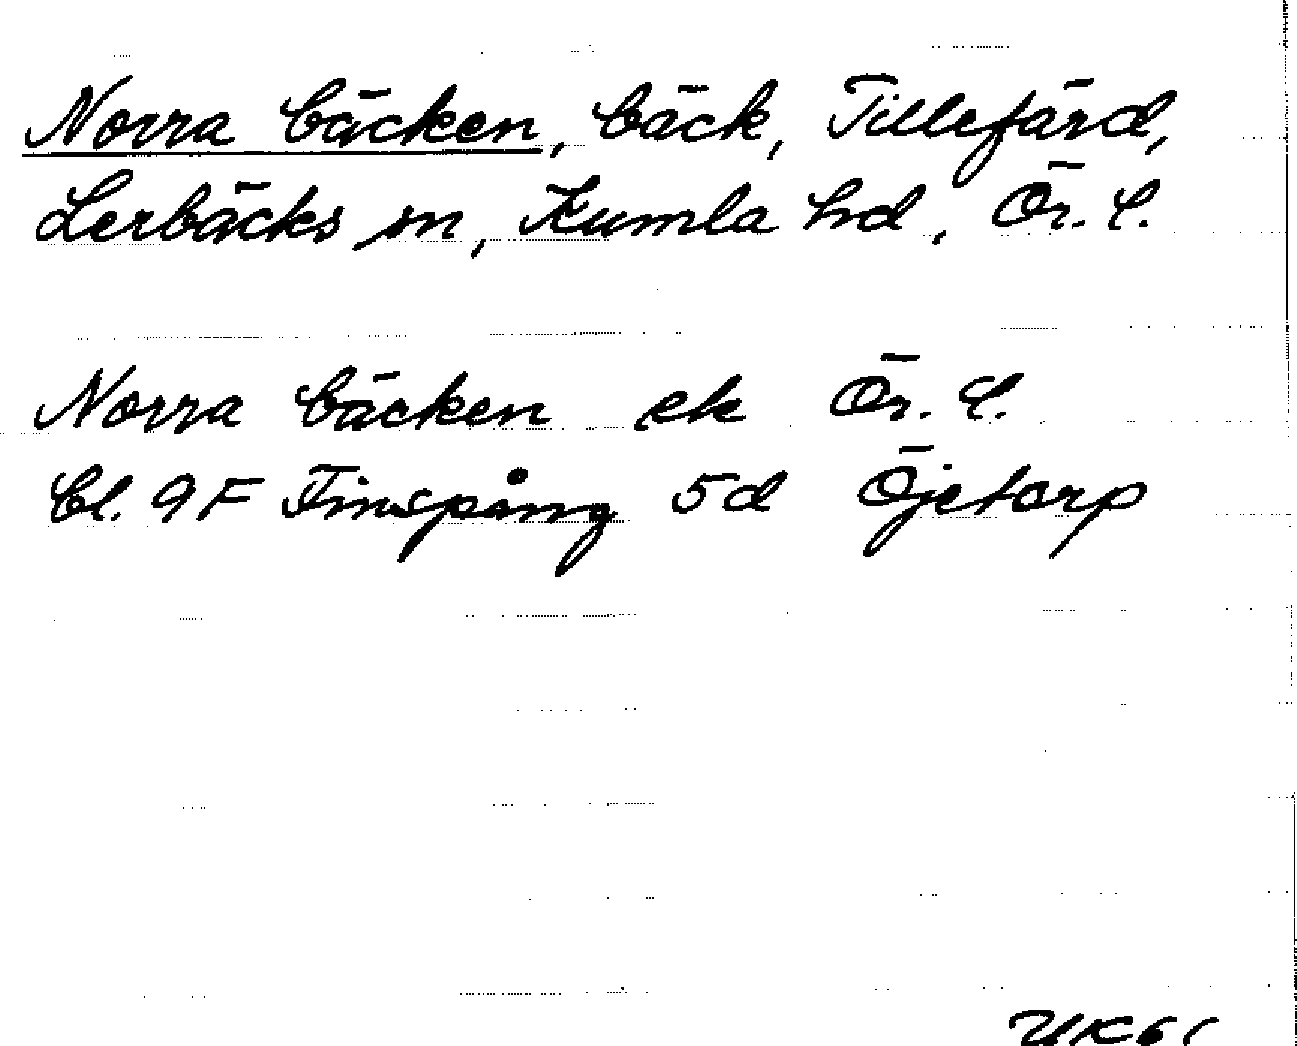 Norra bäcken, bäck, Tillefärd,
Lerbäcks sn, Kumla hd, Ör. l.
Norra bäcken ek Ör. l.
Bl. 9F Finspång 5d Öjetorp